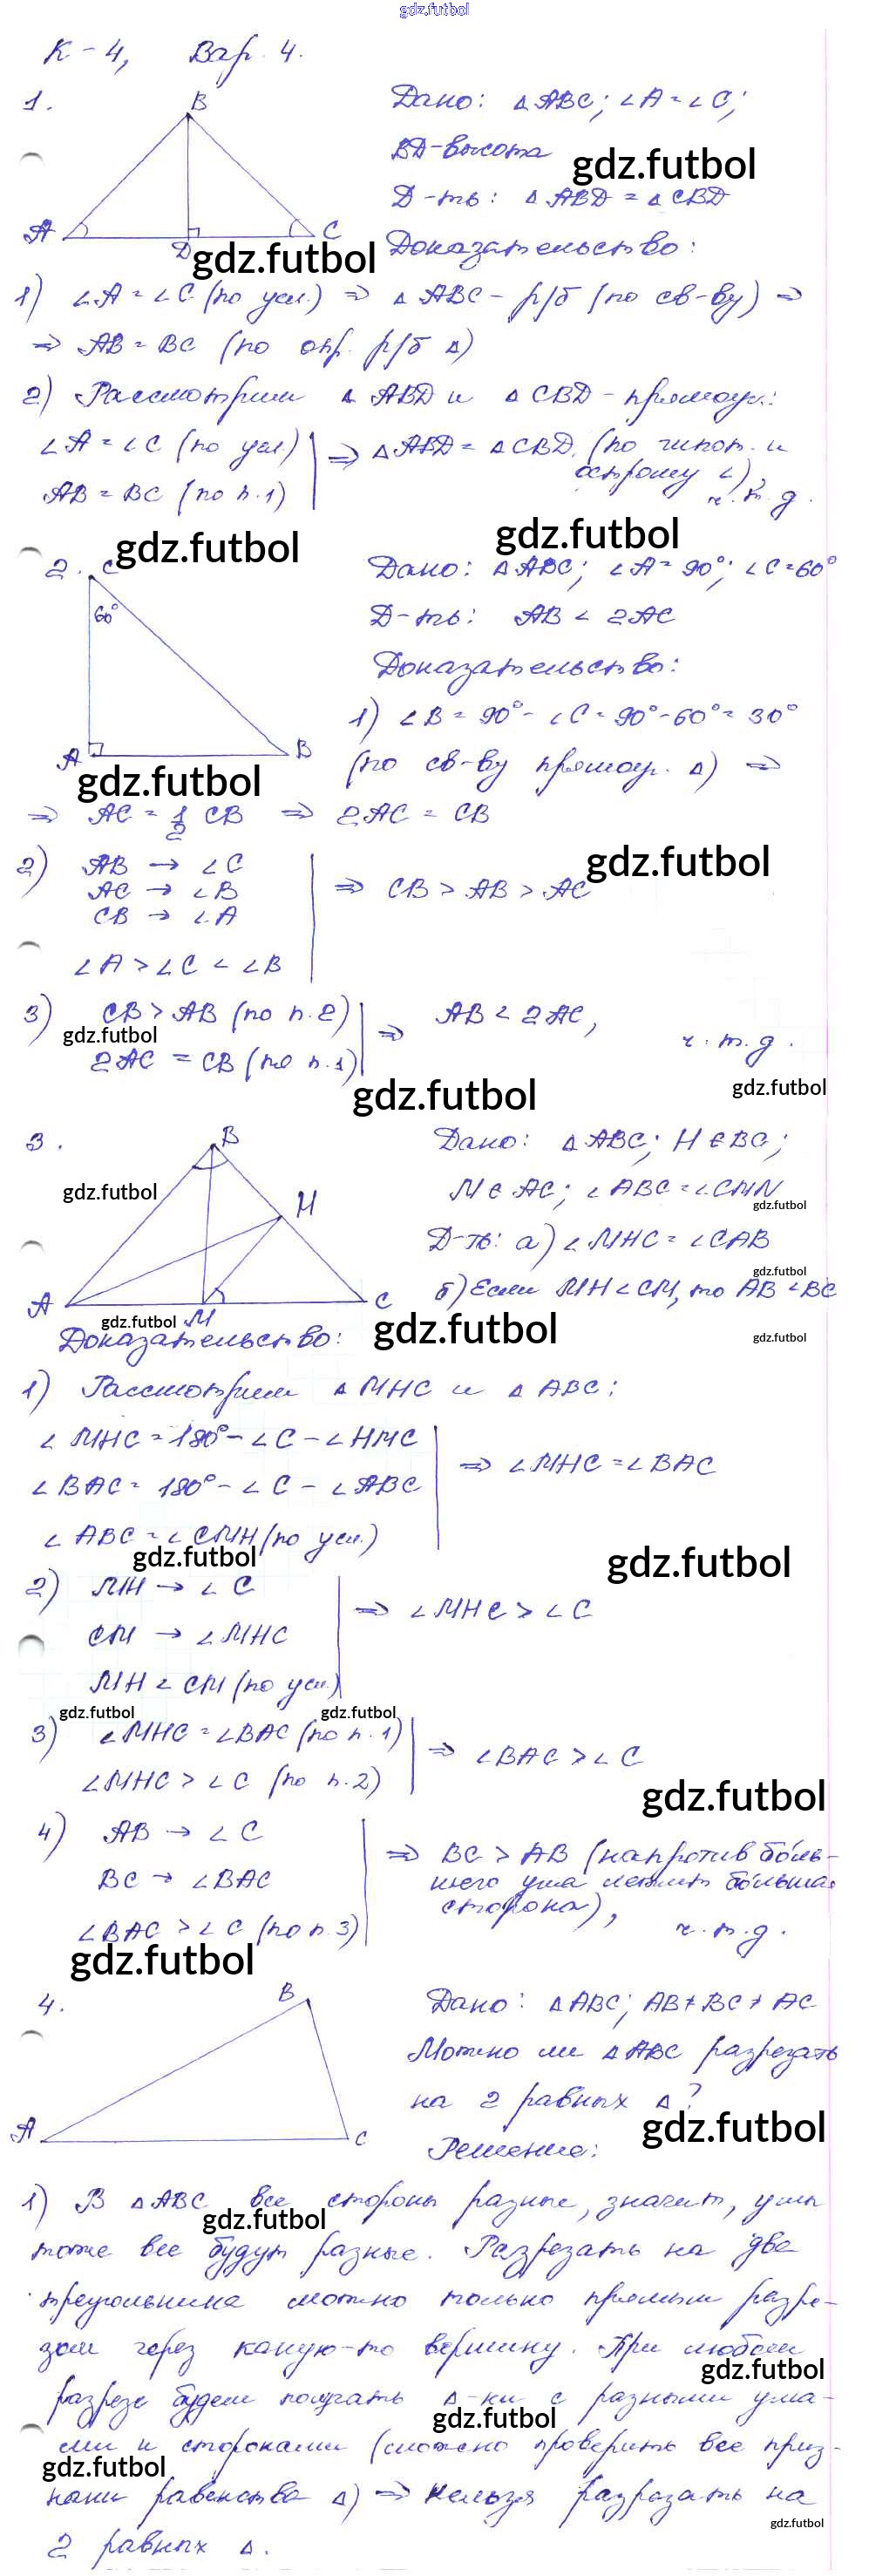 gdz.futbol
К-4, Вар. 4.
1.
B
A
D
C
Дано: △ABC; ∠A=∠C;
BD-высота
gdz.futbol
Д-ть: △ABD = △CBD
gdz.futbol
Доказательство:
1) ∠A = ∠C (по усл.) ⇒ △ABC - р/б (по св-ву) ⇒
⇒ AB = BC (по опр. р/б △)
2) Рассмотрим △ABD и △CBD - прямоуг.:
∠A = ∠C (по усл)
AB = BC (по п.1)
⇒ △ABD = △CBD (по гипот. и
острому ∠),
ч.т.д.
gdz.futbol
gdz.futbol
2.
C
60°
A
B
Дано: △ABC; ∠A=90°; ∠C=60°
Д-ть: AB < 2AC
Доказательство:
1) ∠B = 90° - ∠C = 90°-60° = 30°
(по св-ву прямоуг. △) ⇒
gdz.futbol
⇒ AC = 1/2 CB ⇒ 2AC = CB
2) AB → ∠C
AC → ∠B
CB → ∠A
∠A > ∠C < ∠B
⇒ CB > AB > AC
gdz.futbol
3) CB > AB (по п.2)
2AC = CB (по п.1)
⇒ AB < 2AC,
ч.т.д.
gdz.futbol
gdz.futbol
gdz.futbol
3.
B
H
A
M
C
gdz.futbol
Дано: △ABC; H∈BC;
M∈AC; ∠ABC=∠CMN
gdz.futbol
Д-ть: а) ∠MHC = ∠CAB
gdz.futbol
б) Если MH<CM, то AB<BC
gdz.futbol
gdz.futbol
gdz.futbol
Доказательство:
1) Рассмотрим △MHC и △ABC:
∠MHC = 180° - ∠C - ∠HMC
∠BAC = 180° - ∠C - ∠ABC
∠ABC = ∠CMH (по усл.)
⇒ ∠MHC = ∠BAC
gdz.futbol
gdz.futbol
2) MH → ∠C
CM → ∠MHC
MH < CM (по усл.)
⇒ ∠MHC > ∠C
gdz.futbol
gdz.futbol
3) ∠MHC = ∠BAC (по п.1)
∠MHC > ∠C (по п.2)
⇒ ∠BAC > ∠C
gdz.futbol
4) AB → ∠C
BC → ∠BAC
∠BAC > ∠C (по п.3)
⇒ BC > AB (напротив боль-
шего угла лежит большая
сторона),
ч.т.д.
gdz.futbol
4.
B
A
C
Дано: △ABC; AB≠BC≠AC
Можно ли △ABC разрезать
на 2 равных △?
gdz.futbol
Решение:
1) В △ABC все стороны разные, значит, углы
gdz.futbol
тоже все будут разные. Разрезать на два
треугольника можно только прямым разре-
зом через какую-то вершину. При любом
gdz.futbol
разрезе будем получать △-ки с разными угла-
gdz.futbol
ми и сторонами (можно проверить все приз-
gdz.futbol
наки равенства △) ⇒ нельзя разрезать на
gdz.futbol
2 равных △.